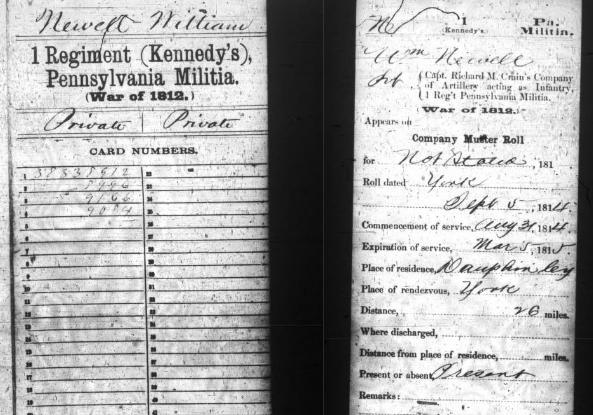 Newell William
1 Regiment (Kennedy's),
Pennsylvania Militia.
(War of 1812.)
Private | Private
CARD NUMBERS.
1 38338612 22
2 23
3 24
4 9084 25
5 26
6 27
7 28
8 29
9 30
10 31
11 32
12 33
13 34
14 35
15 36
16 37
17 38
18 39
19 40
N 1 Pa.
Kennedy's. Militia.
Wm Newell
Pvt { Capt. Richard M. Crain's Company
of Artillery acting as Infantry,
1 Reg't Pennsylvania Militia.
(War of 1812.)
Appears on
Company Muster Roll
for Not Stated, 181
Roll dated York
Sept 5, 1814.
Commencement of service, Aug 31, 1814.
Expiration of service, Mar 5, 1815.
Place of residence, Dauphin
Place of rendezvous, York
Distance, 26 miles.
Where discharged,
Distance from place of residence, miles.
Present or absent, Present
Remarks: